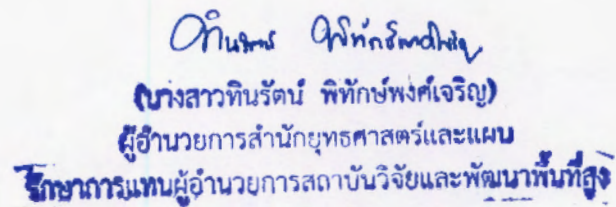 (นางสาวทินรัตน์ พิทักษ์พงศ์เจริญ)
ผู้อำนวยการสำนักยุทธศาสตร์และแผน
รักษาการแทนผู้อำนวยการสถาบันวิจัยและพัฒนาพื้นที่สูง